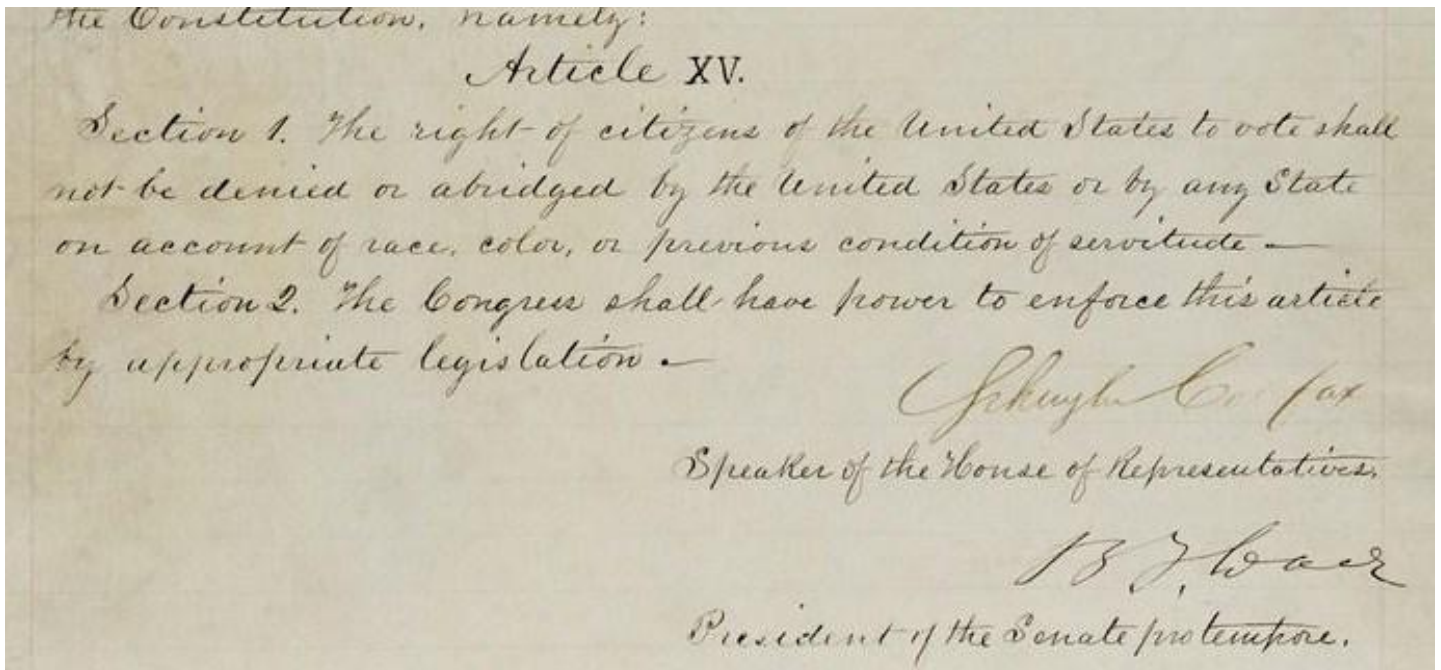 the Constitution, namely:
Article XV.
Section 1. The right of citizens of the United States to vote shall
not be denied or abridged by the United States or by any State
on account of race, color, or previous condition of servitude —
Section 2. The Congress shall have power to enforce this article
by appropriate legislation —
Schuyler Colfax
Speaker of the House of Representatives.
B F Wade
President of the Senate protempore.